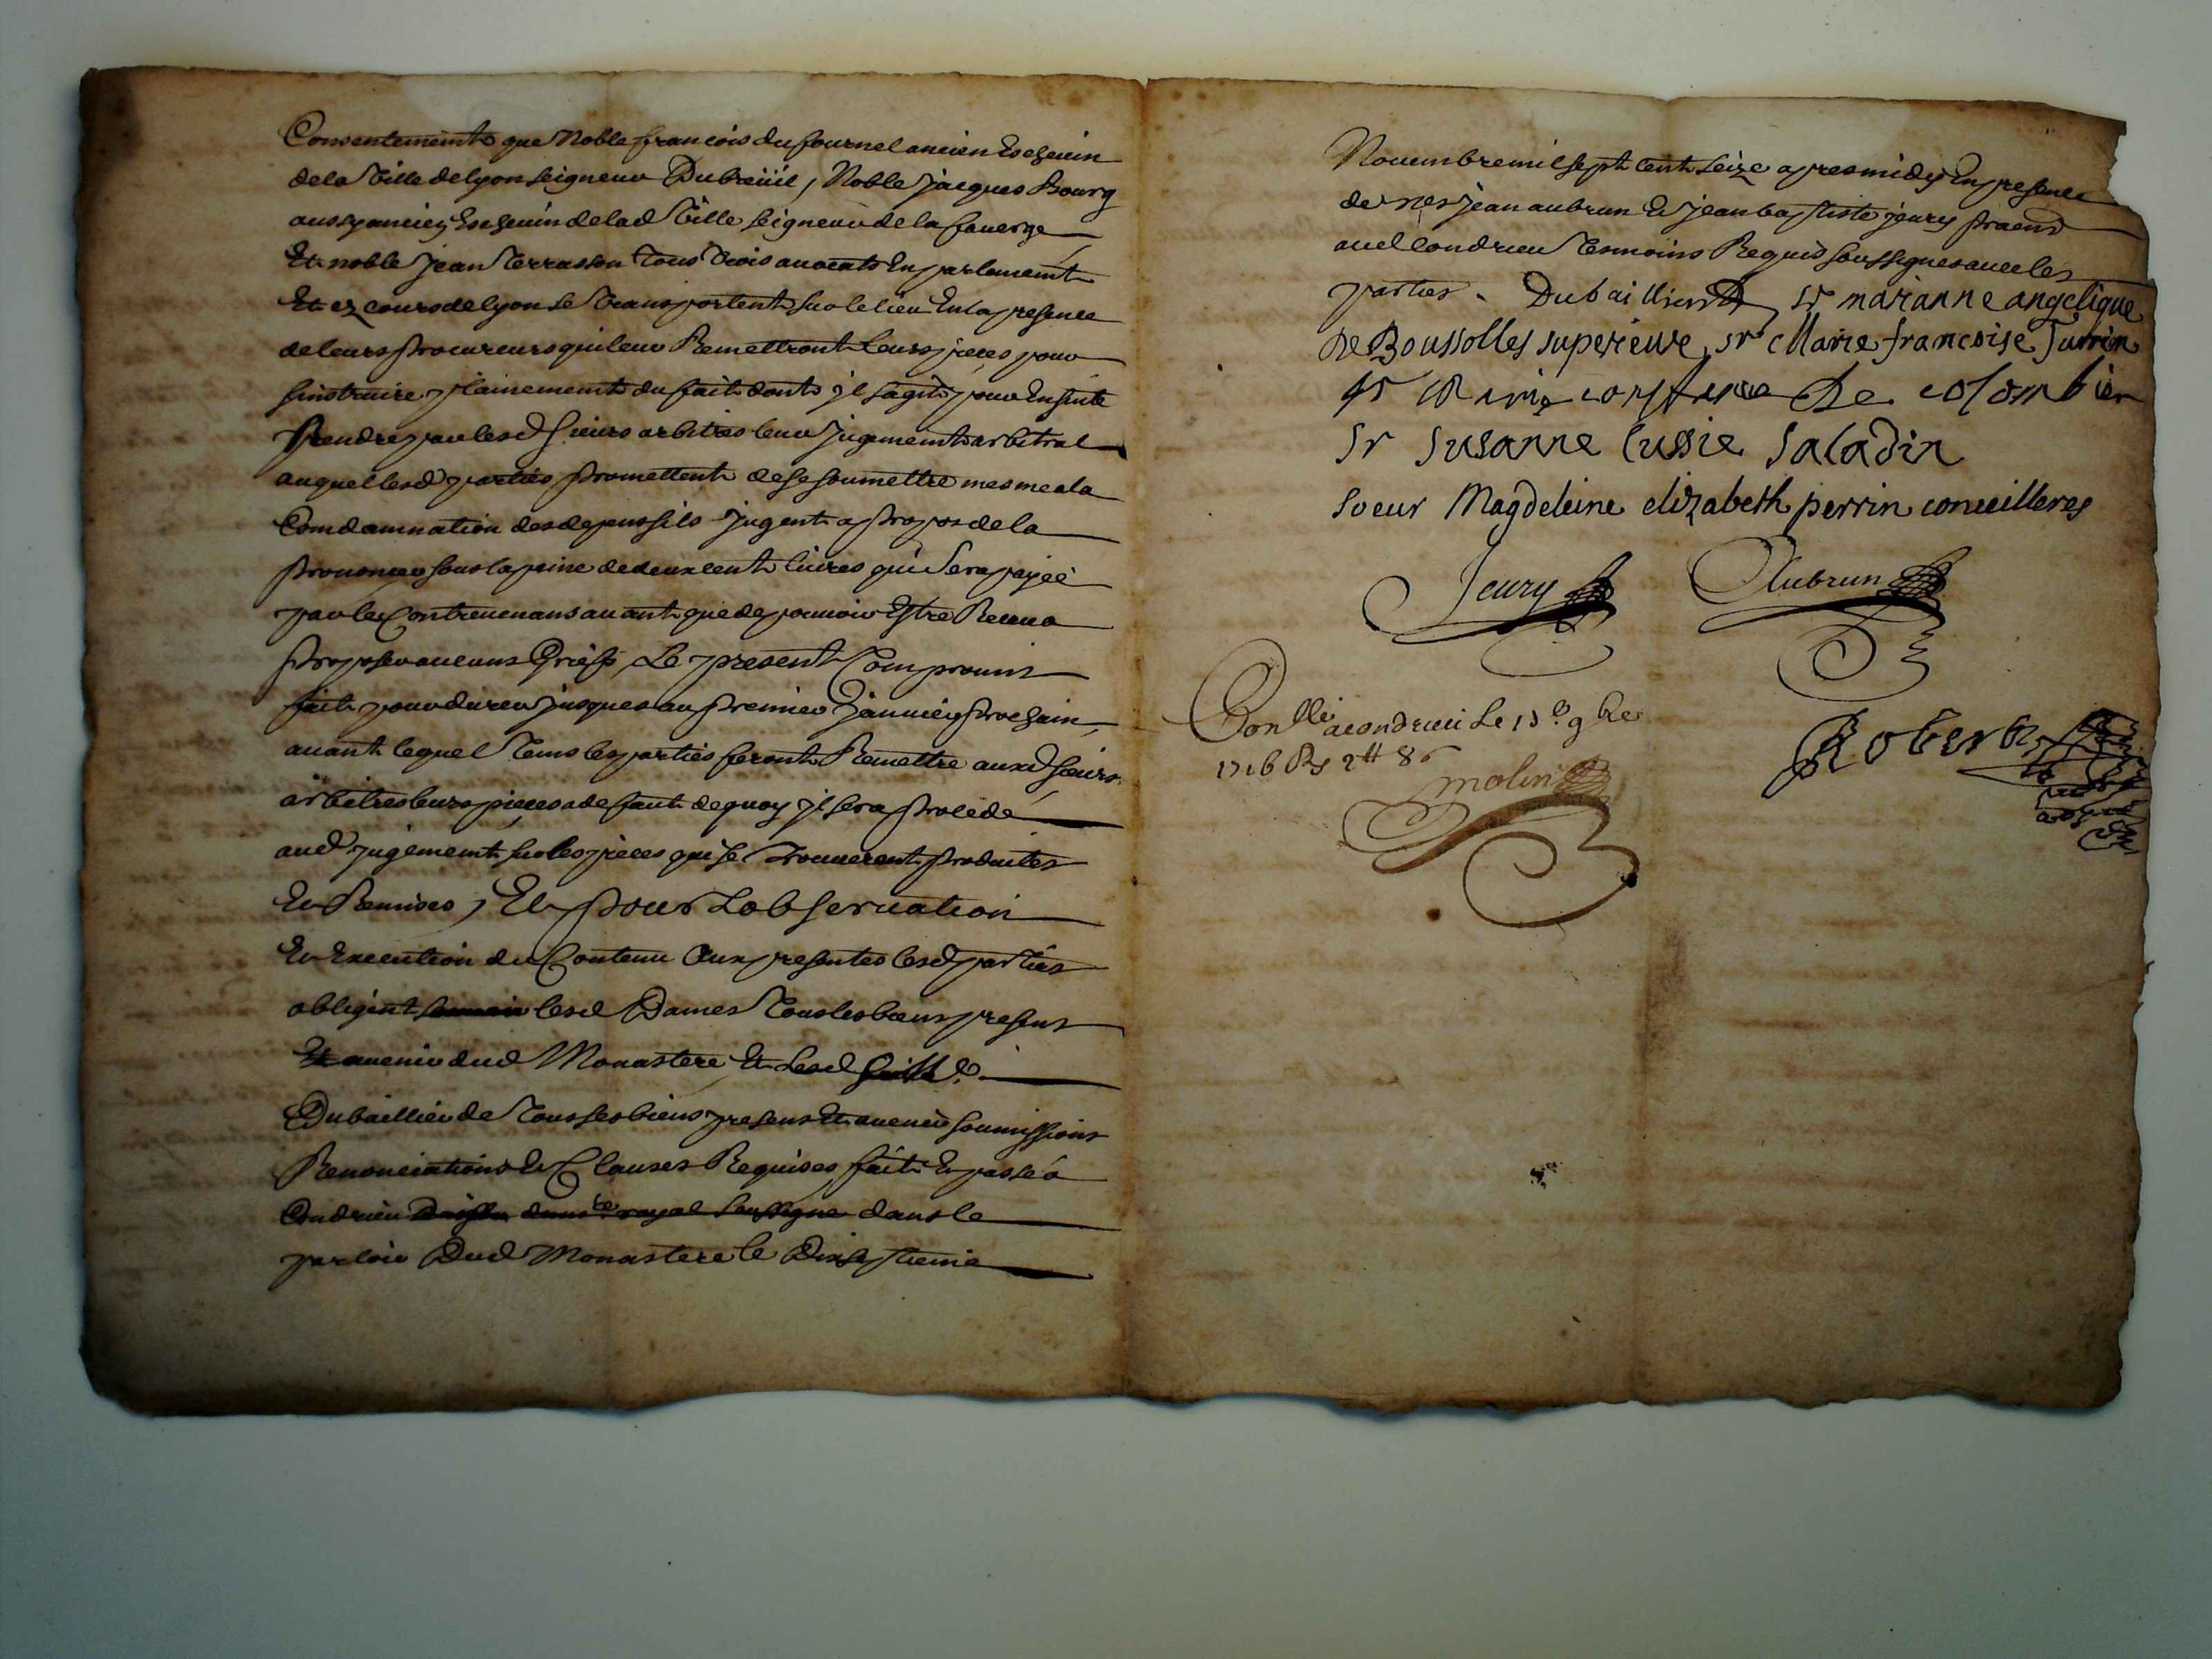 Consentement que Noble francois du fournel ancien Escheuin
dela Ville delyon seigneur Dubreüil, Noble jacques Bourg
aussy ancien Escheuin delad Ville seigneur de la fauerge
Et noble jean Terrasson Tous Trois auocats En parlement
Et ez cours de lyon se Transportent sur le lieu En la presence
de leurs procureurs qui leur Remettront leurs pieces pour
sinstruire plainement du fait dont jl sagit pour Ensuite
Rendre par lesd sieurs arbitres leur jugement arbitral
auquel lesd parties promettent de se soumettre mesme a la
Comdamnation des depens sils jugent a propos de la
prononcer sous la peine de deux cent liures qui sera payeé
par le Contreuenans auant que de pouuoir Estre Receu a
proposer aucuns Griefs, Le present Compromis
fait pour durer jusques au premier januier prochain
auant lequel Tems les parties feront Remettre auxd sieurs
arbitres leurs pieces a defaut de quoy jl sera procedé
aud jugement sur les pieces qui se Trouueront produites
Et Remises, Et pour Lobseruation
Et Execution du Contenu Aux presentes lesd parties
obligent lesd Dames Tous les biens presens
Et auenir dud Monastere Et Led
Dubaillier de Tous ses biens presens Et auenir soumissions
Renonciations Et Clauses Requises fait Et passé a
Condrieu royal soussigne dans le
parloir Dud Monastere le Dixseptieme
Nouembre mil sept cent seize apres midy En presence
de jean aubrun Et jean baptiste jeury
aud Condrieu Tesmoins Requis soussignes auec les
parties. Dubaillier sr marianne angelique
de Boussolles superieure, sr Marie francoise Turrin
sr constance de colombier
sr susanne lussie saladin
soeur Magdeleine elizabeth perrin conseilleres
Jeury Aubrun
Conllé a condrieu Le 9bre
1716 Rs 2tt 8s
molin
Robert